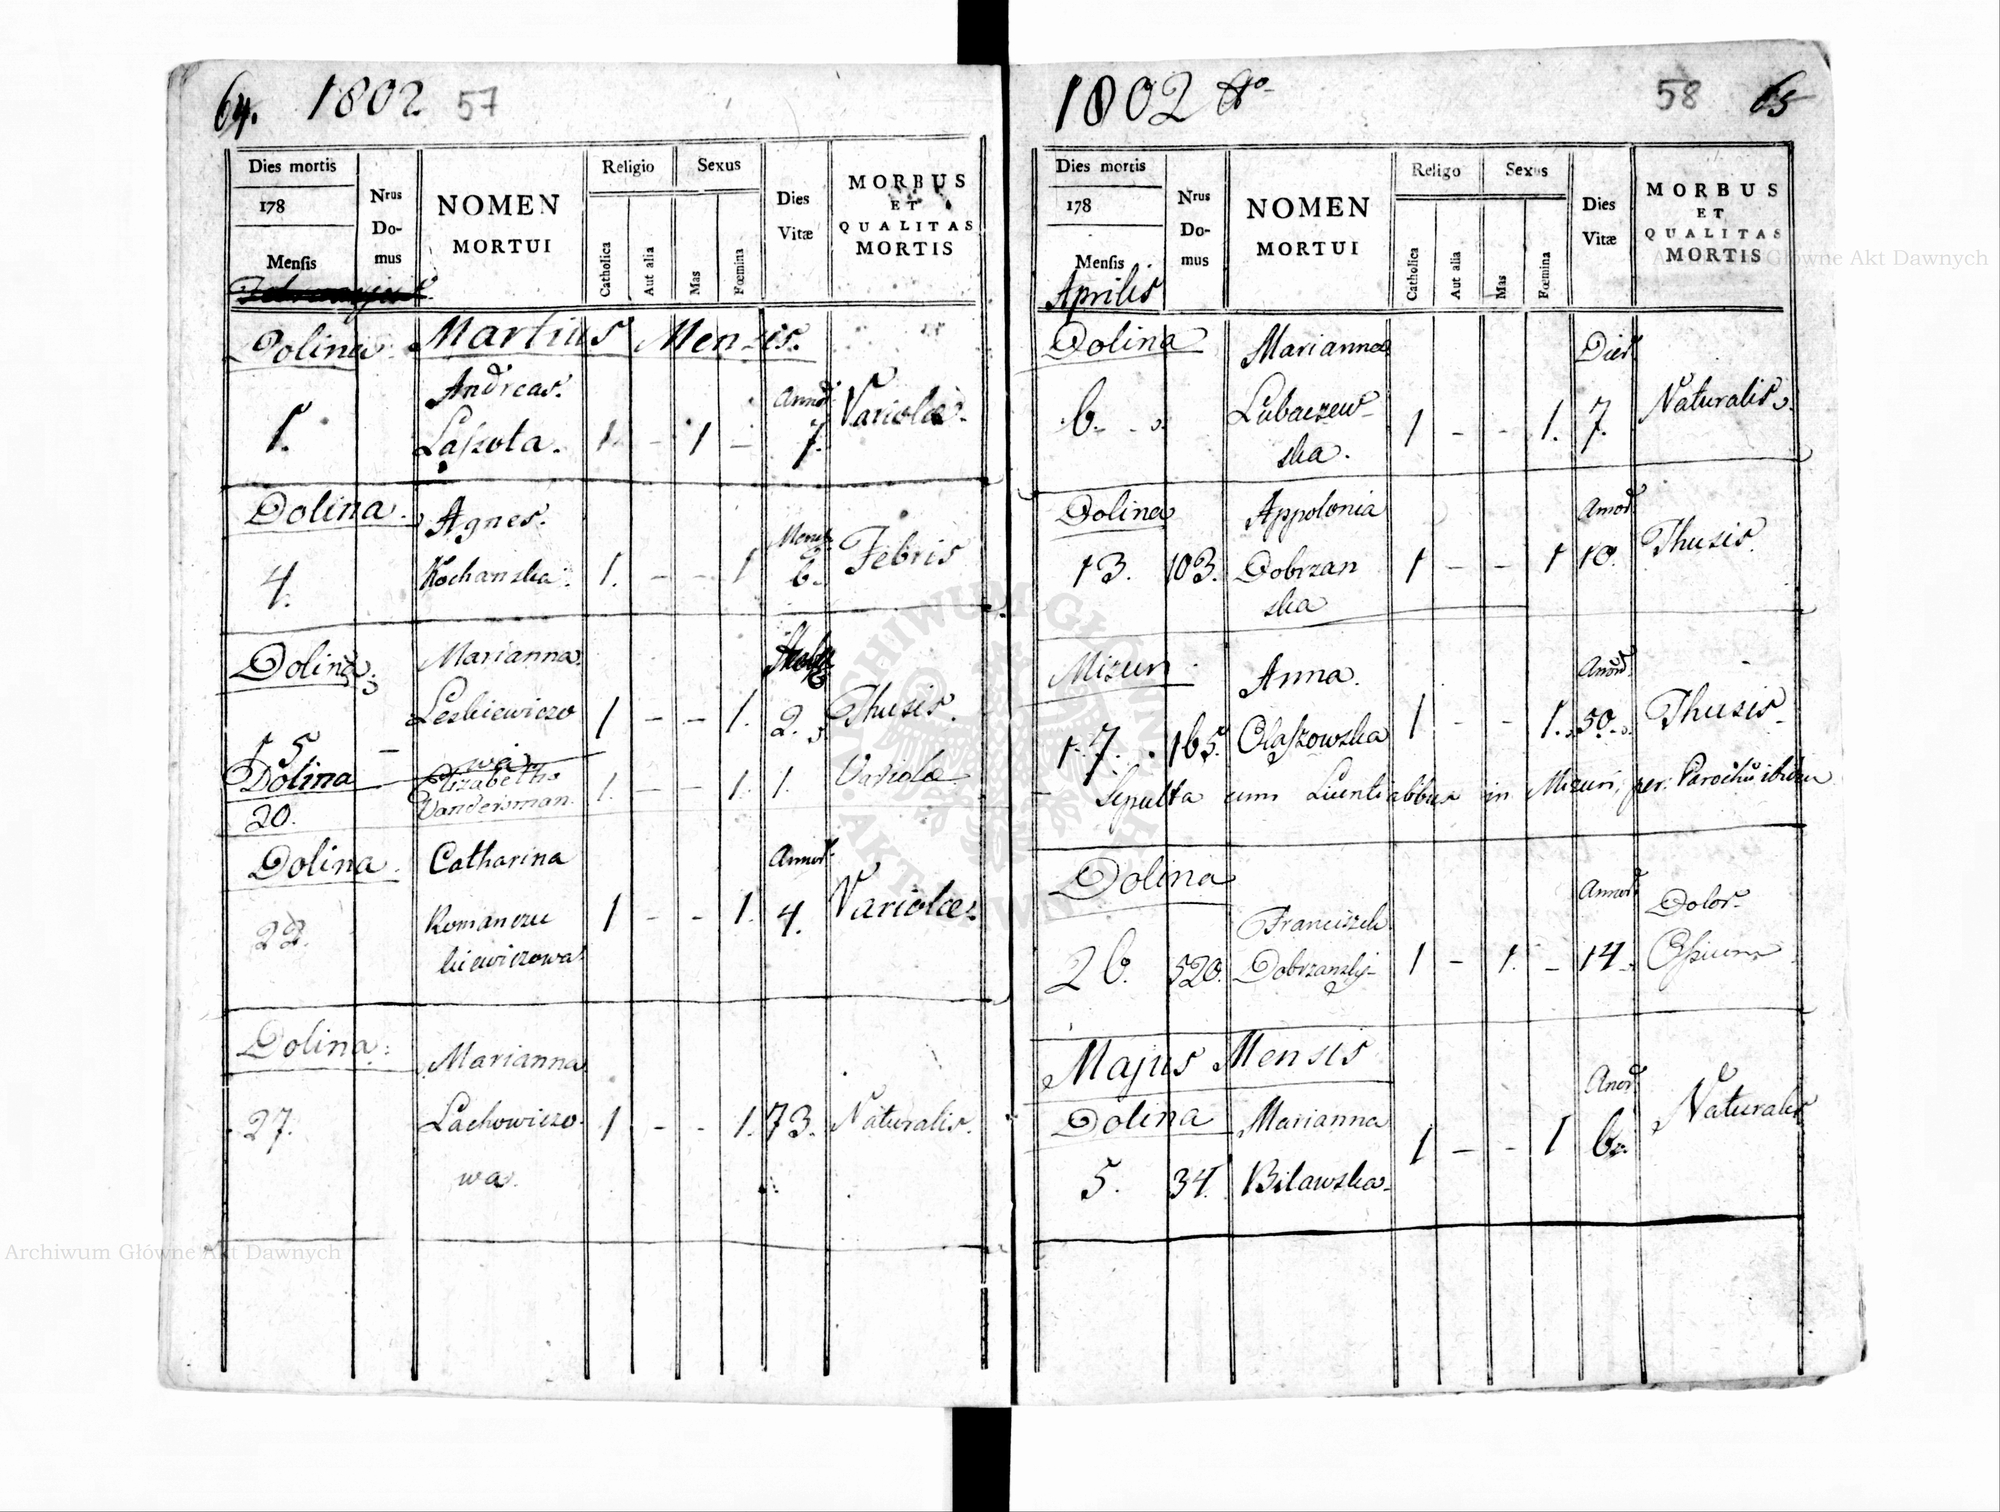 64. 1802. 57
Dies mortis
178
Mensis
Nrus
Do-
mus
NOMEN
MORTUI
Religio
Catholica
Aut alia
Sexus
Mas
Fœmina
Dies
Vitæ
MORBUS
ET
QUALITAS
MORTIS
Dolina. Martius Mensis.
Andreas.
1. Laszota. 1. - 1 - 7. Variolæ.
Dolina. Agnes.
4. Kochanska. 1. - - 1 6. Febris
Dolina. Marianna.
15 Leskiewiczo 1 - - 1. 2. Thusis.
wa
Dolina Elizabetha
20. Vandersman. 1. - - 1. 1. Variolæ
Dolina. Catharina Annor.
22. Romanczu 1 - - 1. 4. Variolæ.
kiewiczowa.
Dolina. Marianna
27. Lachowiczo- 1 - - 1. 73. Naturalis.
wa.
1802 58 65
Dies mortis
178
Mensis
Aprilis
Nrus
Do-
mus
NOMEN
MORTUI
Religo
Catholica
Aut alia
Sexus
Mas
Fœmina
Dies
Vitæ
MORBUS
ET
QUALITAS
MORTIS
Dolina Marianna Dies
6. Lubaczew- 1 - - 1. 7. Naturalis.
ska.
Dolina Appolonia
13. 103. Dobrzan 1 - - 1 10. Thusis.
ska
Mizun Anna.
17. 165. Olaszowska 1 - - 1. 50. Thusis
Sepulta cum in Mizun, per Parochũ ibidem
Dolina
Franciszek Dolor
26. 520. Dobrzanski 1 - 1. - 14 Ossium
Majus Mensis
Dolina Marianna
5. 34. Bilawska. 1 - - 1 6. Naturalis
Archiwum Główne Akt Dawnych
Archiwum Główne Akt Dawnych
ARCHIWUM GŁÓWNE AKT DAWNYCH